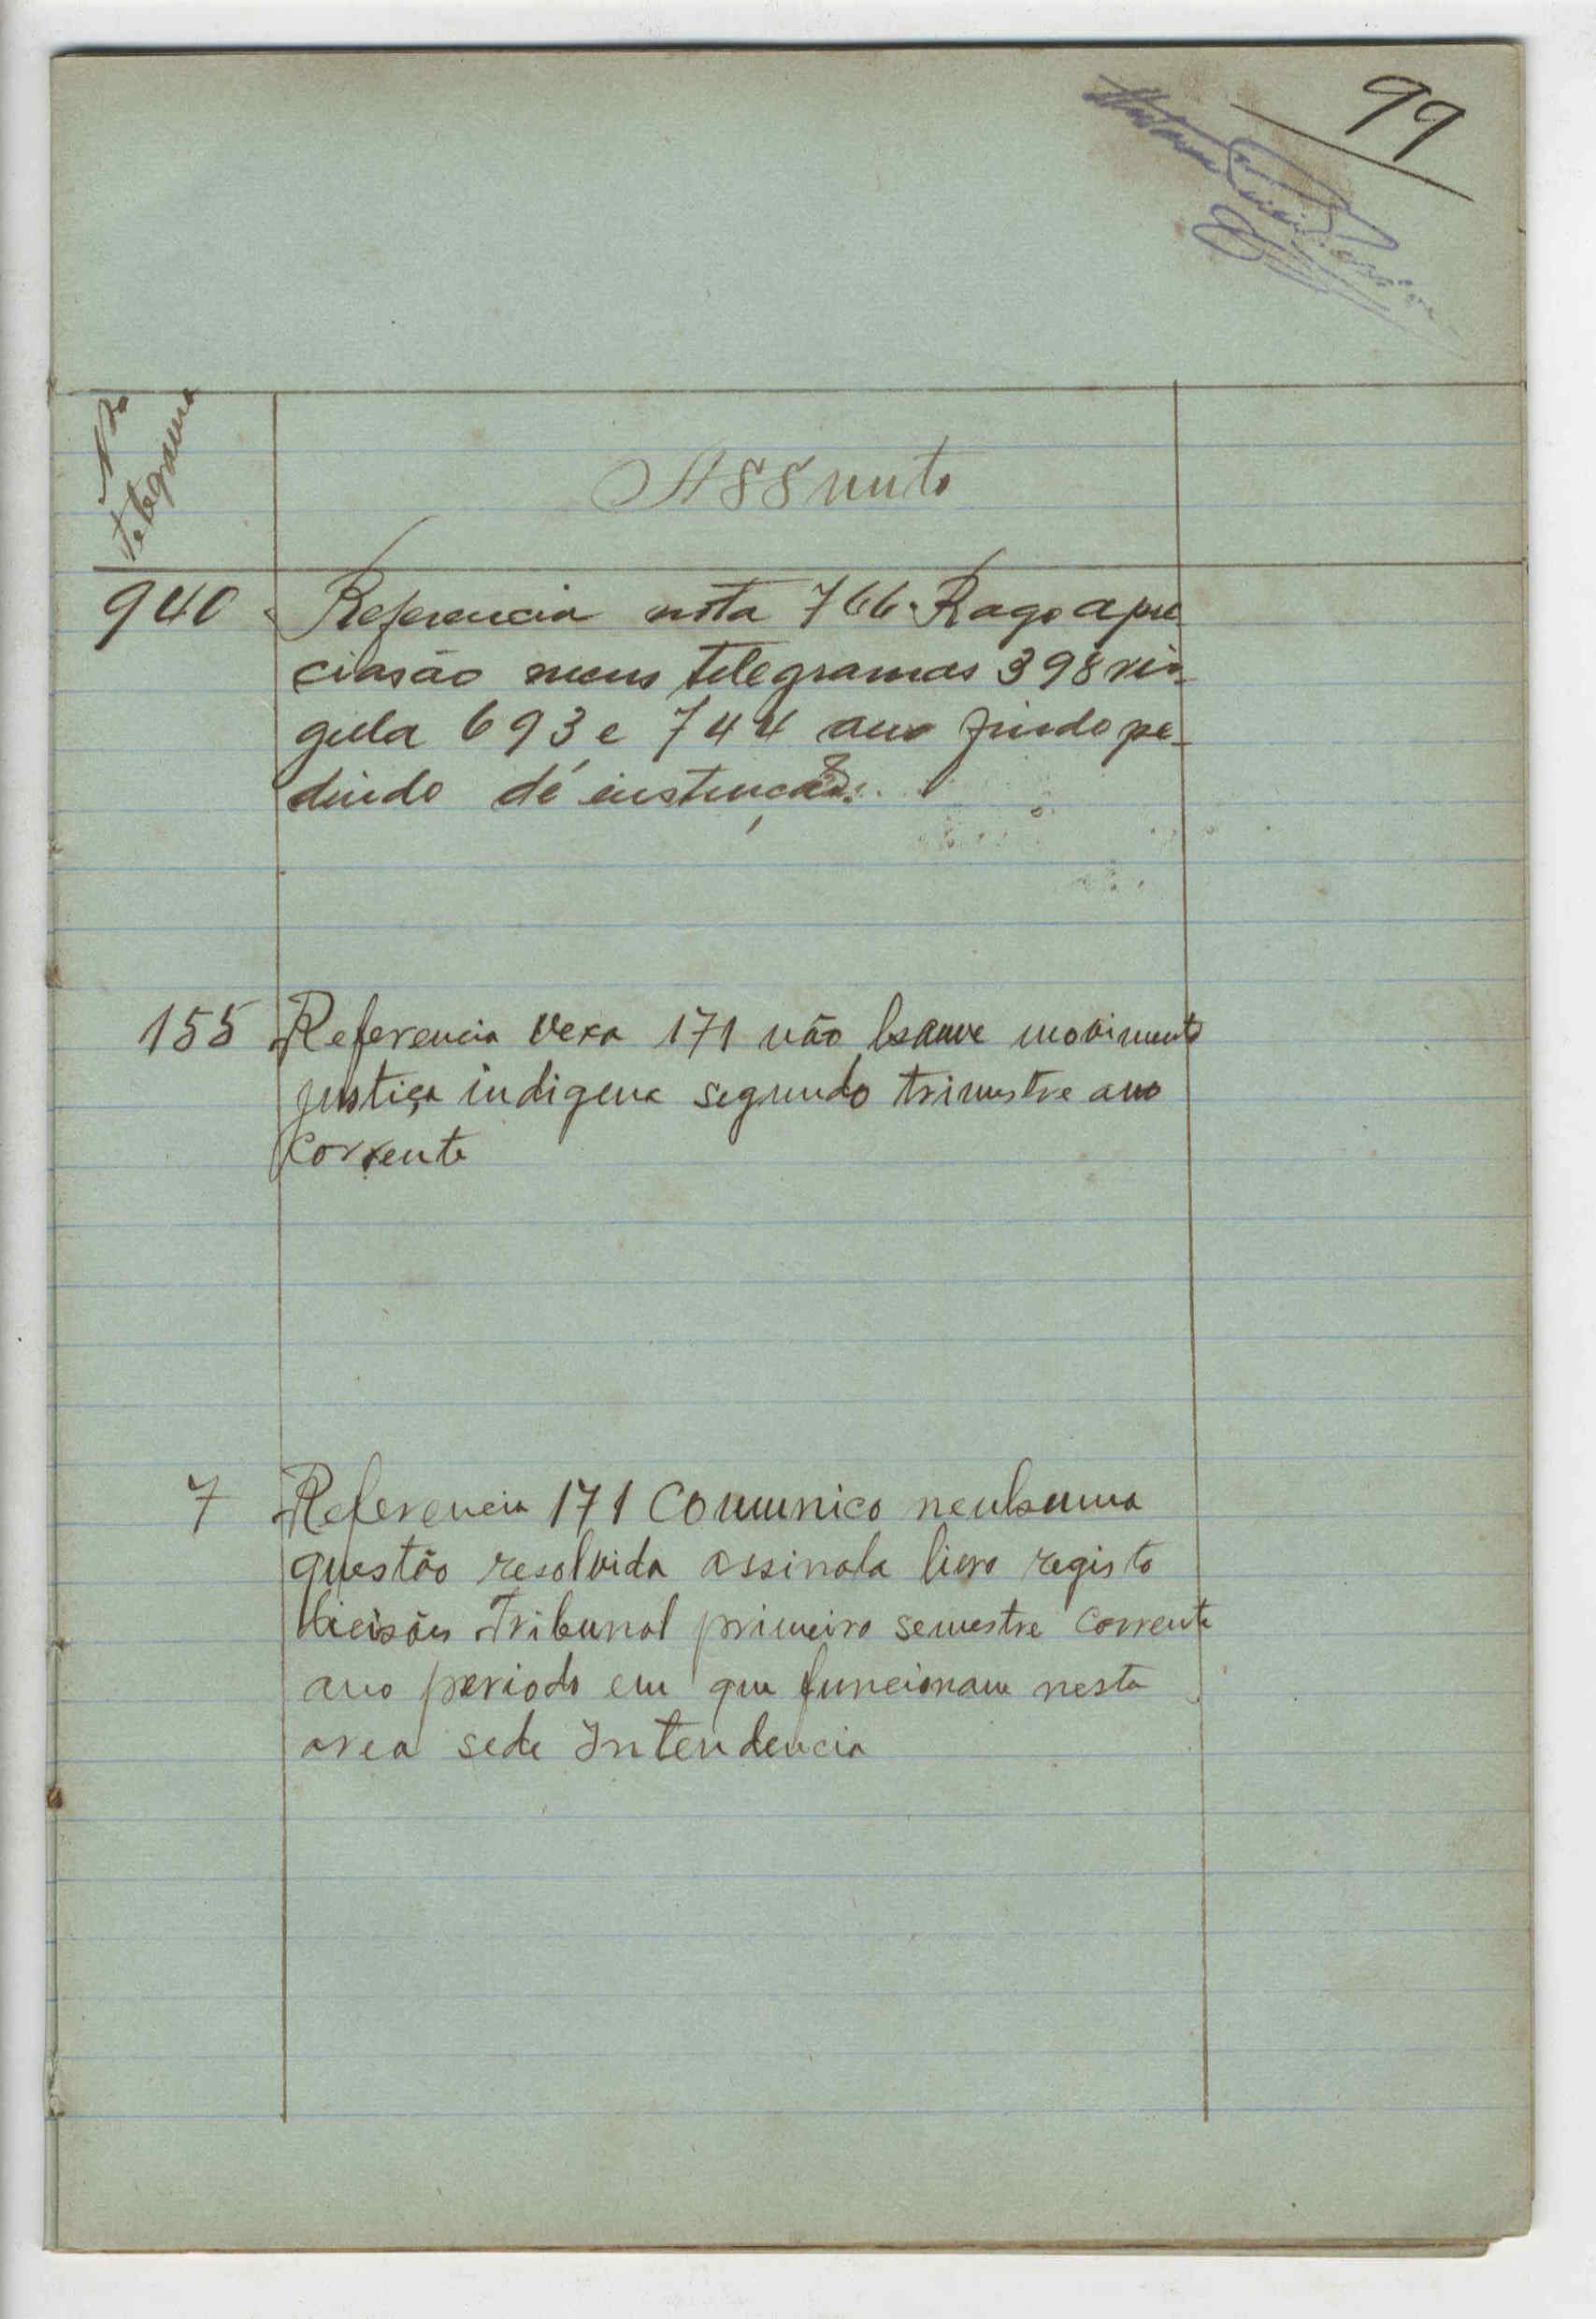 99
No
telegrama
Assunto
940 Referencia nota 766 Rago apre
ciasão meus telegramas 398 vir-
gula 693 e 744 ano findo pe-
dindo dé
155 Referencia vexa 171 não houve movimento
justiça indigena segundo trimestre ano
corrente
7 Referencia 171 Comunico nenhuma
questão resolvida assinala livro registo
Tribunal primeiro semestre corrente
ano periodo em que funcionam nesta
area sede Intendencia